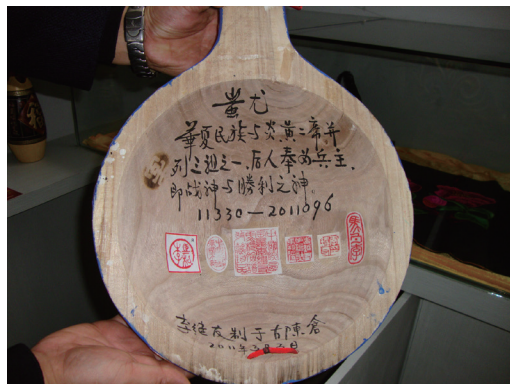 蚩尤
華夏民族与炎黄二帝并
列之祖之一、后人奉为兵主、
即战神与勝利之神
11330—2011096
李继友制于古陳倉
2011年